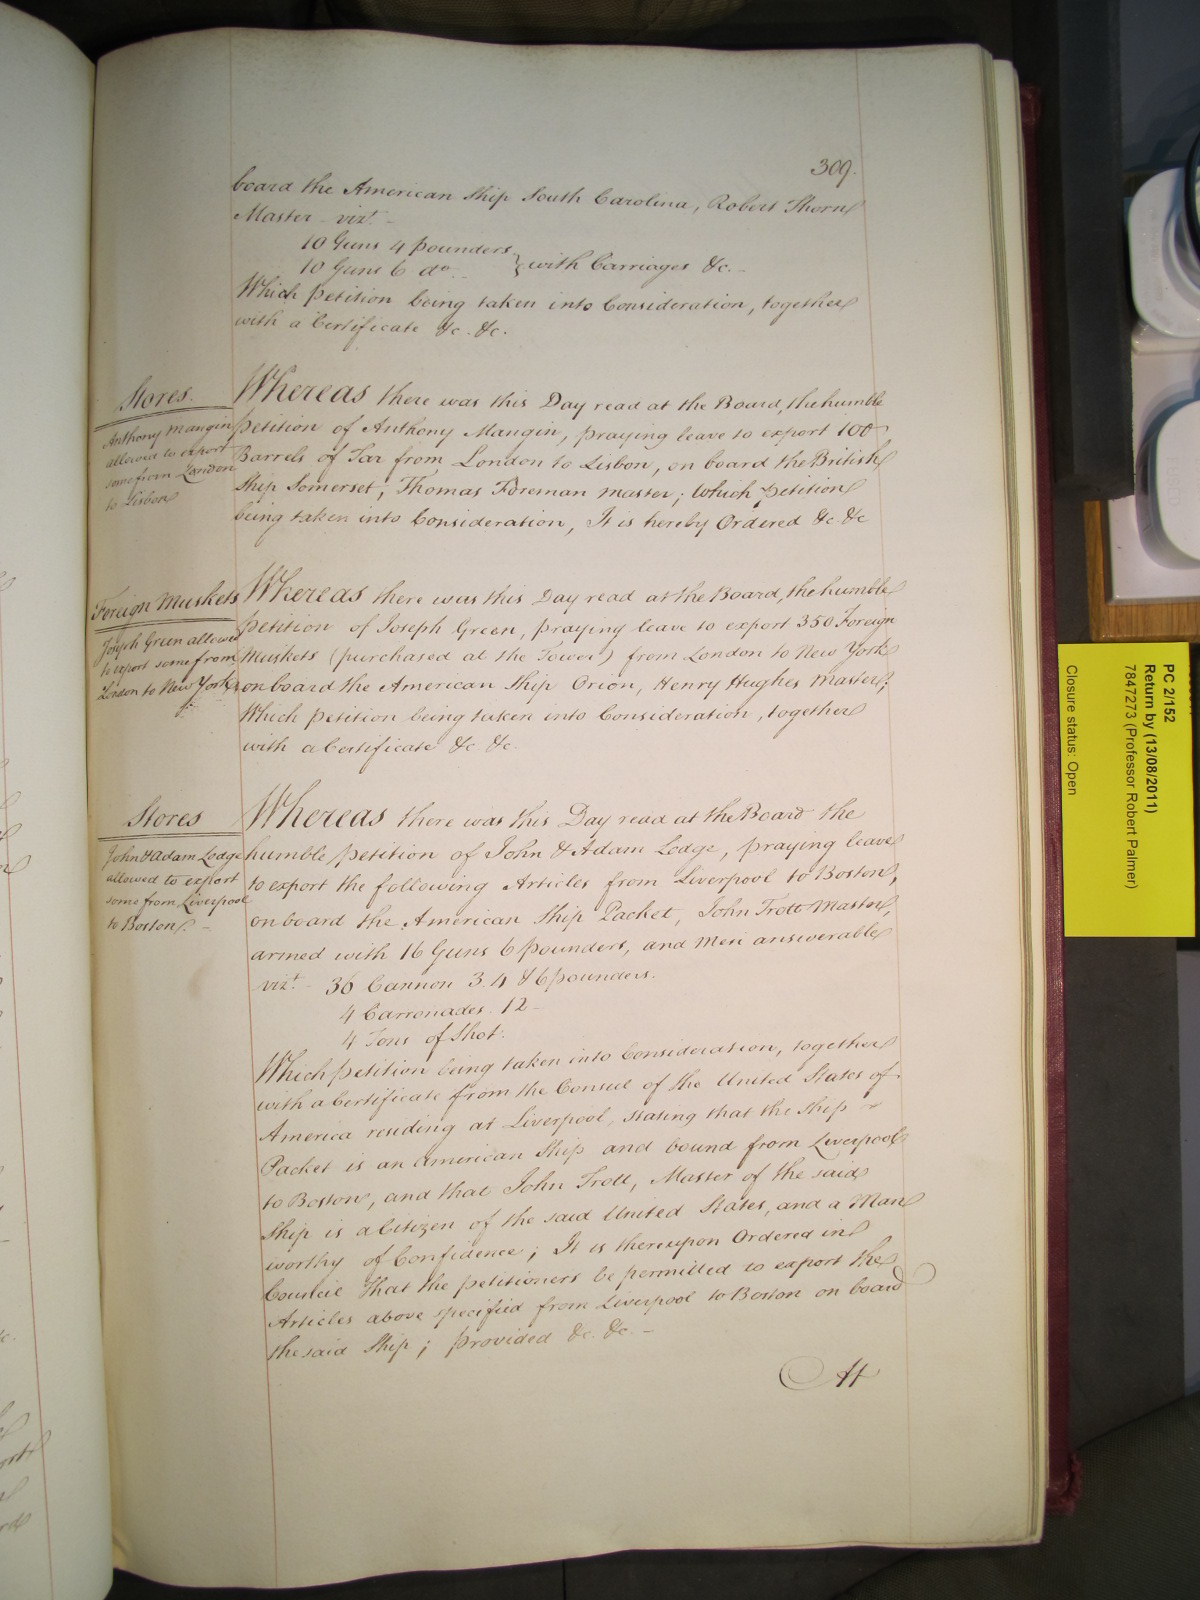 309.
board the American Ship South Carolina, Robert Thorn
Master vizt. -
10 Guns 4 pounders
10 Guns 6 do.. } with Carriages &c. -
Which Petition being taken into Consideration, together
with a Certificate &c. &c.
Stores.
Anthony Mangin
allowed to export
some from London
to Lisbon
Whereas there was this Day read at the Board, the humble
Petition of Anthony Mangin, praying leave to export 100
Barrels of Tar from London to Lisbon, on board the British
Ship Somerset, Thomas Foreman Master; Which Petition
being taken into Consideration, It is hereby Ordered &c &c
Foreign Muskets
Joseph Green allowed
to export some from
London to New York
Whereas there was this Day read at the Board, the humble
Petition of Joseph Green, praying leave to export 350 Foreign
Muskets (purchased at the Tower) from London to New York
on board the American Ship Orion, Henry Hughes Master;
Which Petition being taken into Consideration, together
with a Certificate &c. &c.
Stores
John & Adam Lodge
allowed to export
some from Liverpool
to Boston -
Whereas there was this Day read at the Board the
humble Petition of John & Adam Lodge, praying leave
to export the following Articles from Liverpool to Boston,
on board the American Ship Packet, John Trott Master,
armed with 16 Guns 6 pounders, and Men answerable
vizt. - 36 Cannon 3. 4 & 6 pounders.
4 Carronades. 12 -
4 Tons of Shot.
Which Petition being taken into Consideration, together
with a Certificate from the Consul of the United States of
America residing at Liverpool, stating that the Ship
Packet is an American Ship and bound from Liverpool
to Boston, and that John Trott, Master of the said
Ship is a Citizen of the said United States, and a Man
worthy of Confidence; It is thereupon Ordered in
Council That the Petitioners be permitted to export the
Articles above specified from Liverpool to Boston on board
the said Ship; provided &c. &c. -
At
PC 2/152
Return by (13/08/2011)
7847273 (Professor Robert Palmer)
Closure status: Open